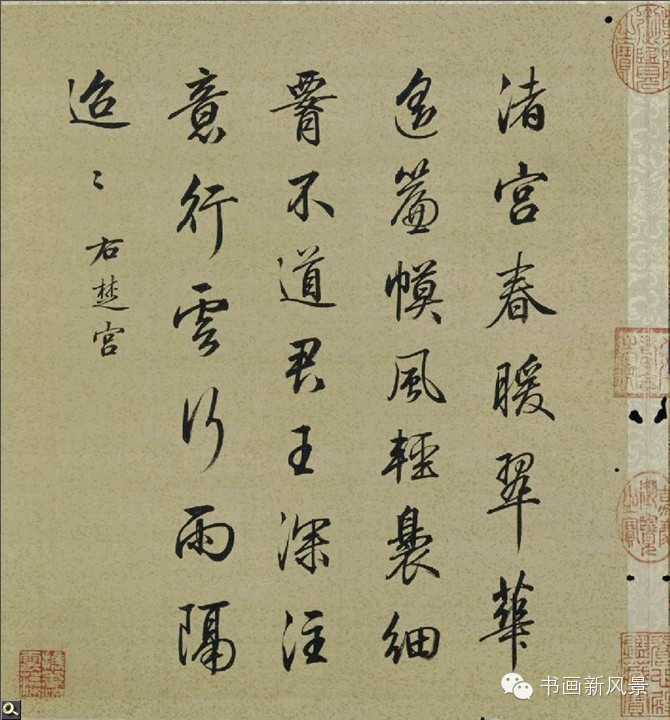 渚宮春暖翠華
遙簾幙風輕裊細
腰不道君王深注
意行雲行雨隔
迢〻右楚宮
书画新风景